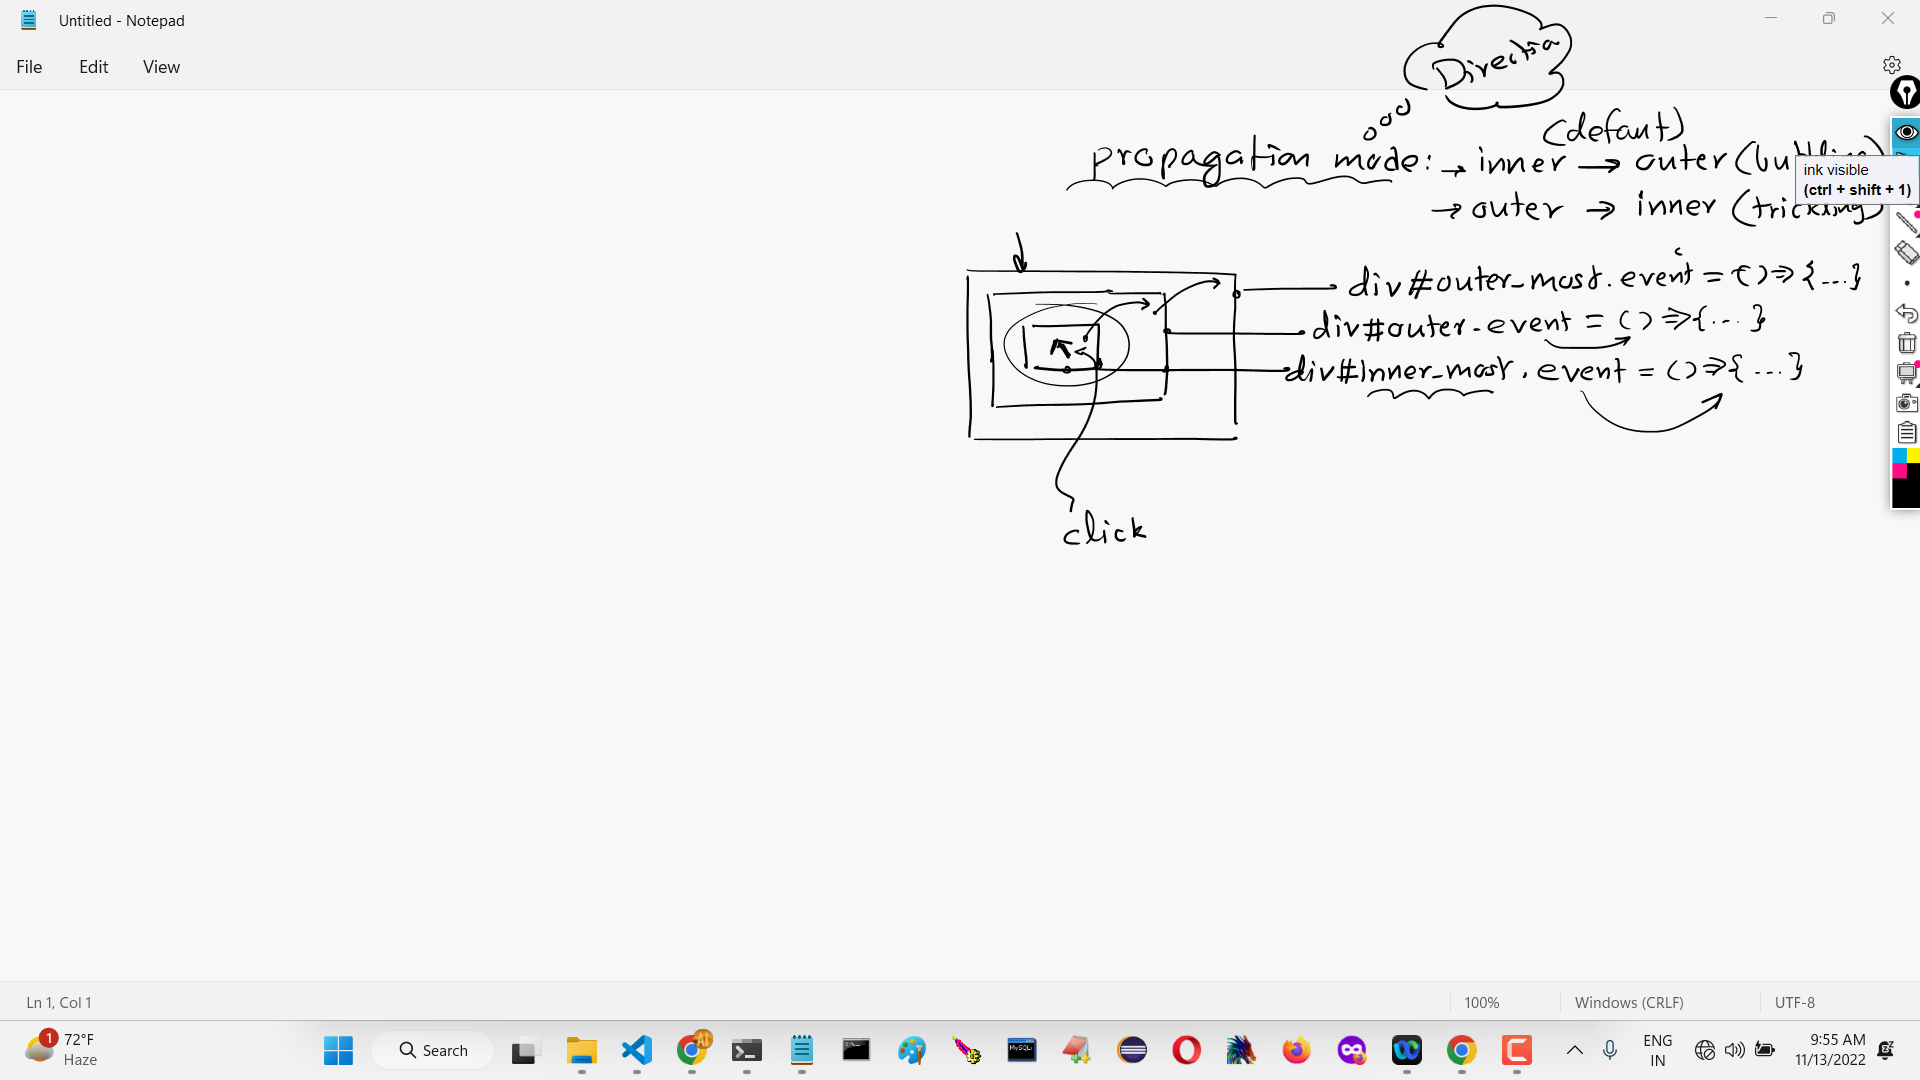 Untitled - Notepad
File Edit View
Direction
(default)
propagation mode: → inner → outer (
→ outer → inner (trickling)
ink visible
(ctrl + shift + 1)
div#outer_most.event = () => {...}
div#outer.event = () => {...}
div#inner_most.event = () => {...}
click
Ln 1, Col 1
100%
Windows (CRLF)
UTF-8
1
72°F
Haze
Search
AI
MySQL
ENG
IN
9:55 AM
11/13/2022